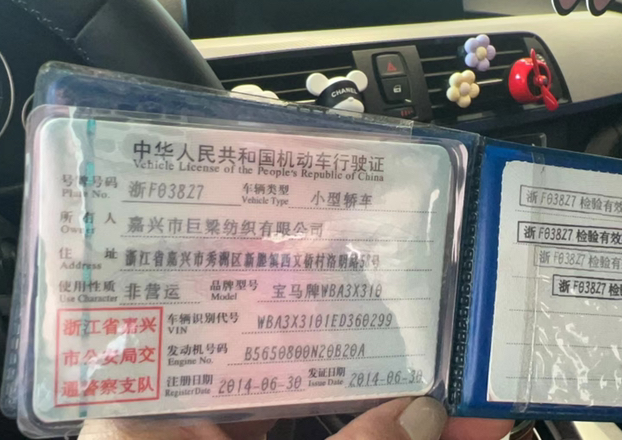 中华人民共和国机动车行驶证
Vehicle License of the People's Republic of China
号牌号码 浙F03827 车辆类型 小型轿车
Plate No. Vehicle Type
所有人 嘉兴市巨梁纺织有限公司
Owner
住址 浙江省嘉兴市秀洲区新塍镇
Address
使用性质 非营运 品牌型号 宝马牌WBA3X310
Use Character Model
浙江省嘉兴
市公安局交
通警察支队
车辆识别代号 WBA3X3101ED360299
VIN
发动机号码 B5650800N20B20A
Engine No.
注册日期 2014-06-30 发证日期 2014-06-30
Register Date Issue Date
浙F038Z7 检验有效
浙F038Z7 检验有效
浙F038Z7 检验有效
浙F038Z7 检验
CHANEL